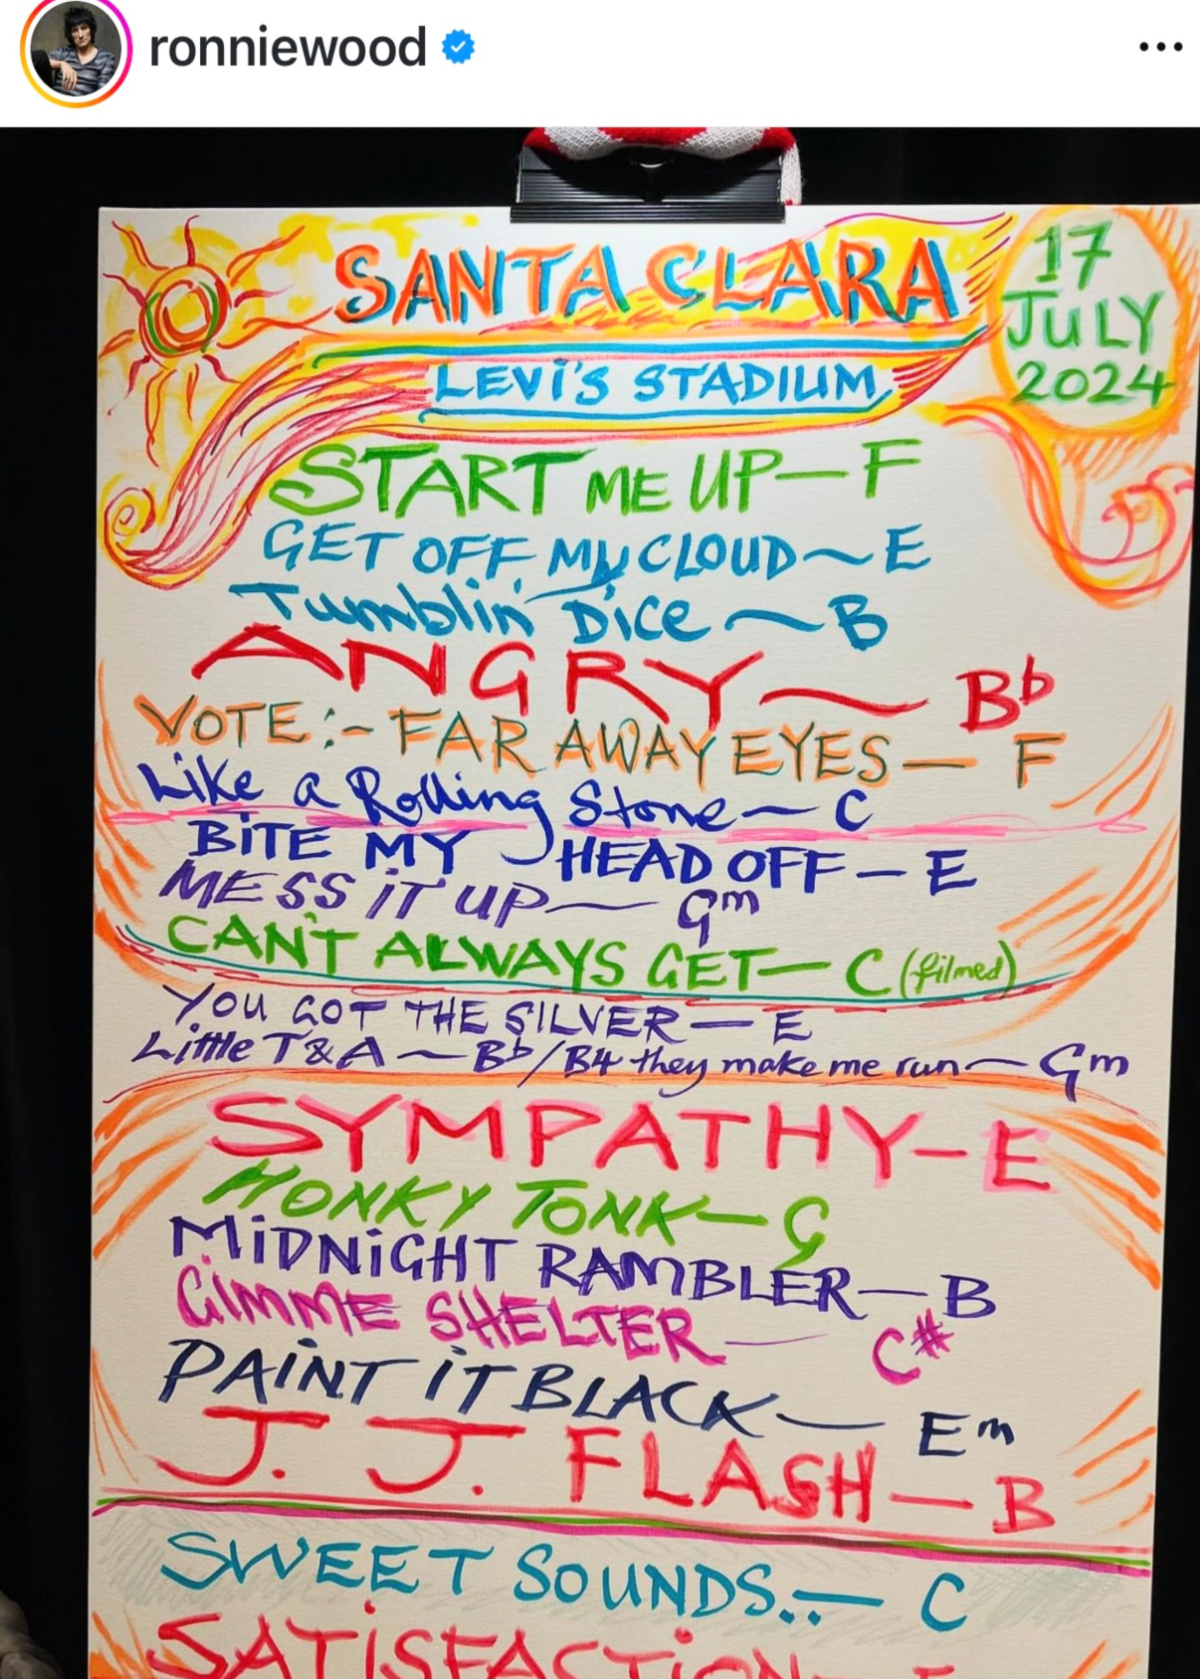 ronniewood
SANTA CLARA
17
JULY
2024
LEVI'S STADIUM
START ME UP — F
GET OFF MY CLOUD ~ E
Tumblin' Dice ~ B
ANGRY ~ Bb
VOTE:- FAR AWAY EYES — F
Like a Rolling Stone — C
BITE MY HEAD OFF — E
MESS IT UP — Gm
CAN'T ALWAYS GET — C (filmed)
YOU GOT THE SILVER — E
Little T & A ~ Bb/B4 they make me run — Gm
SYMPATHY — E
HONKY TONK — G
MIDNIGHT RAMBLER — B
GIMME SHELTER — C#
PAINT IT BLACK — Em
J. J. FLASH — B
SWEET SOUNDS.. — C
SATISFACTION —